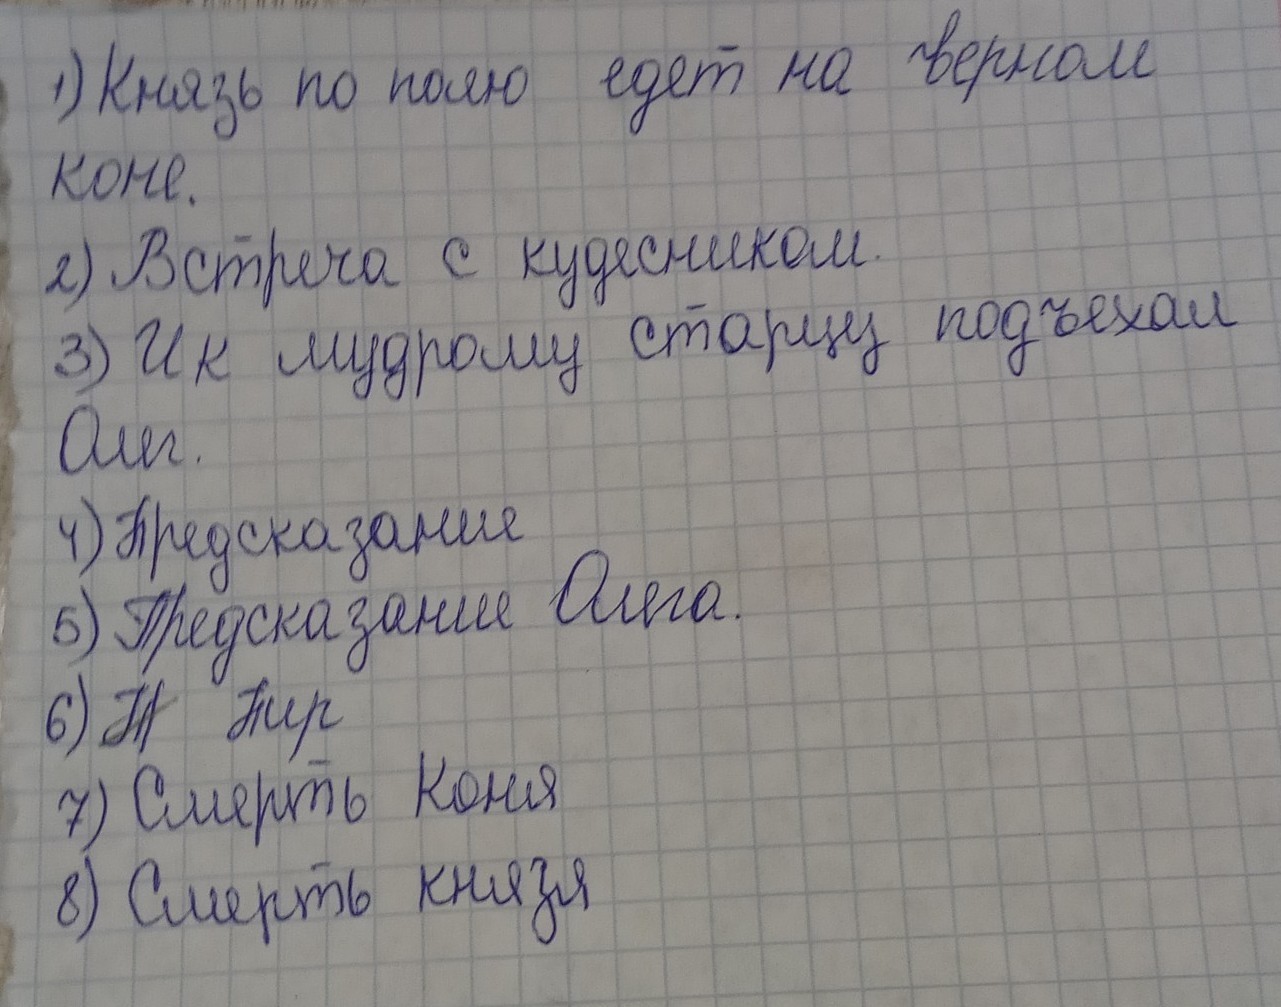 1) Князь по полю едет на верном
коне.
2) Встреча с кудесником.
3) И к мудрому старцу подъехал
Олег.
4) Предсказание
5) Предсказание Олега.
6) Пир
7) Смерть Коня
8) Смерть князя